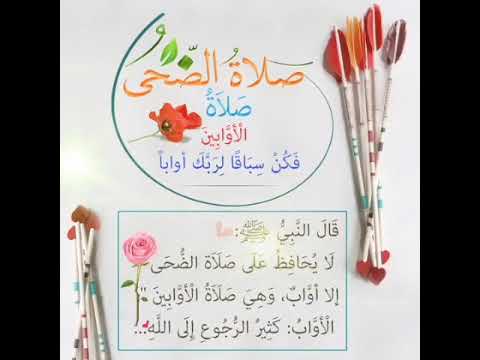 صلاةُ الضّحى
صَلاَةُ
الْأَوَّابِينَ
فَكُنْ سِبَاقًا لِرَبَّكَ أواباً
قَالَ النَّبِيُّ ﷺ:
لَا يُحَافِظُ عَلَى صَلَاَة الضُّحَى
إلا أوَّابٌ، وَهِيَ صَلَاَةُ الْأَوَّابِينَ "
الْأَوَّابُ: كَثِيرُ الرُّجُوعِ إِلَى اللَّهِ...